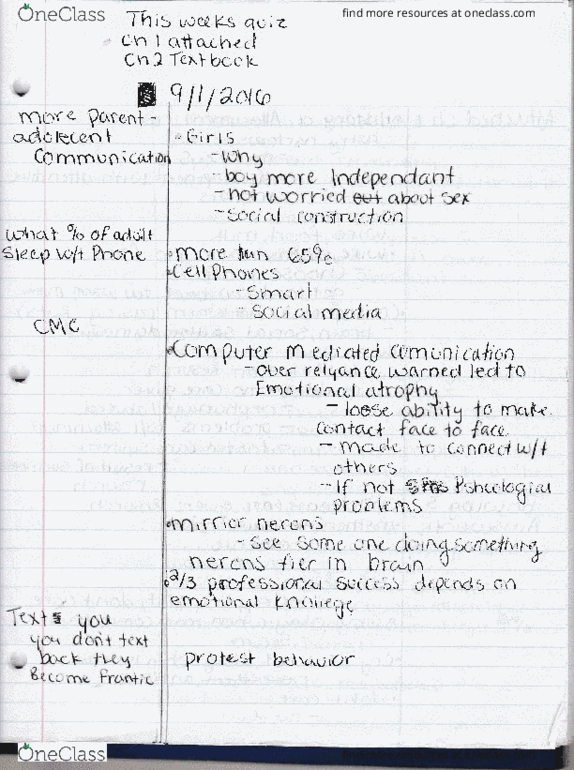 OneClass
find more resources at oneclass.com
This weeks quiz
Ch 1 attached
Ch 2 Textbook
9/1/2016
more parent-
adolecent
Communication
Girls
- Why
- boy more Independant
- not worried about sex
- social construction
What % of adult
Sleep w/t Phone
more than 65%
Cell Phones
- Smart
- Social media
CMC
Computer mediated comunication
- over relyance warned led to
Emotional atrophy
- loose ability to make
contact face to face
- made to connect w/t
others
- If not Pshcological
problems
mirrier nerons
- see some one doing something
nerons fier in brain
2/3 professional success depends on
emotional
Text you
you don't text
back they
Become frantic
protest behavior
OneClass